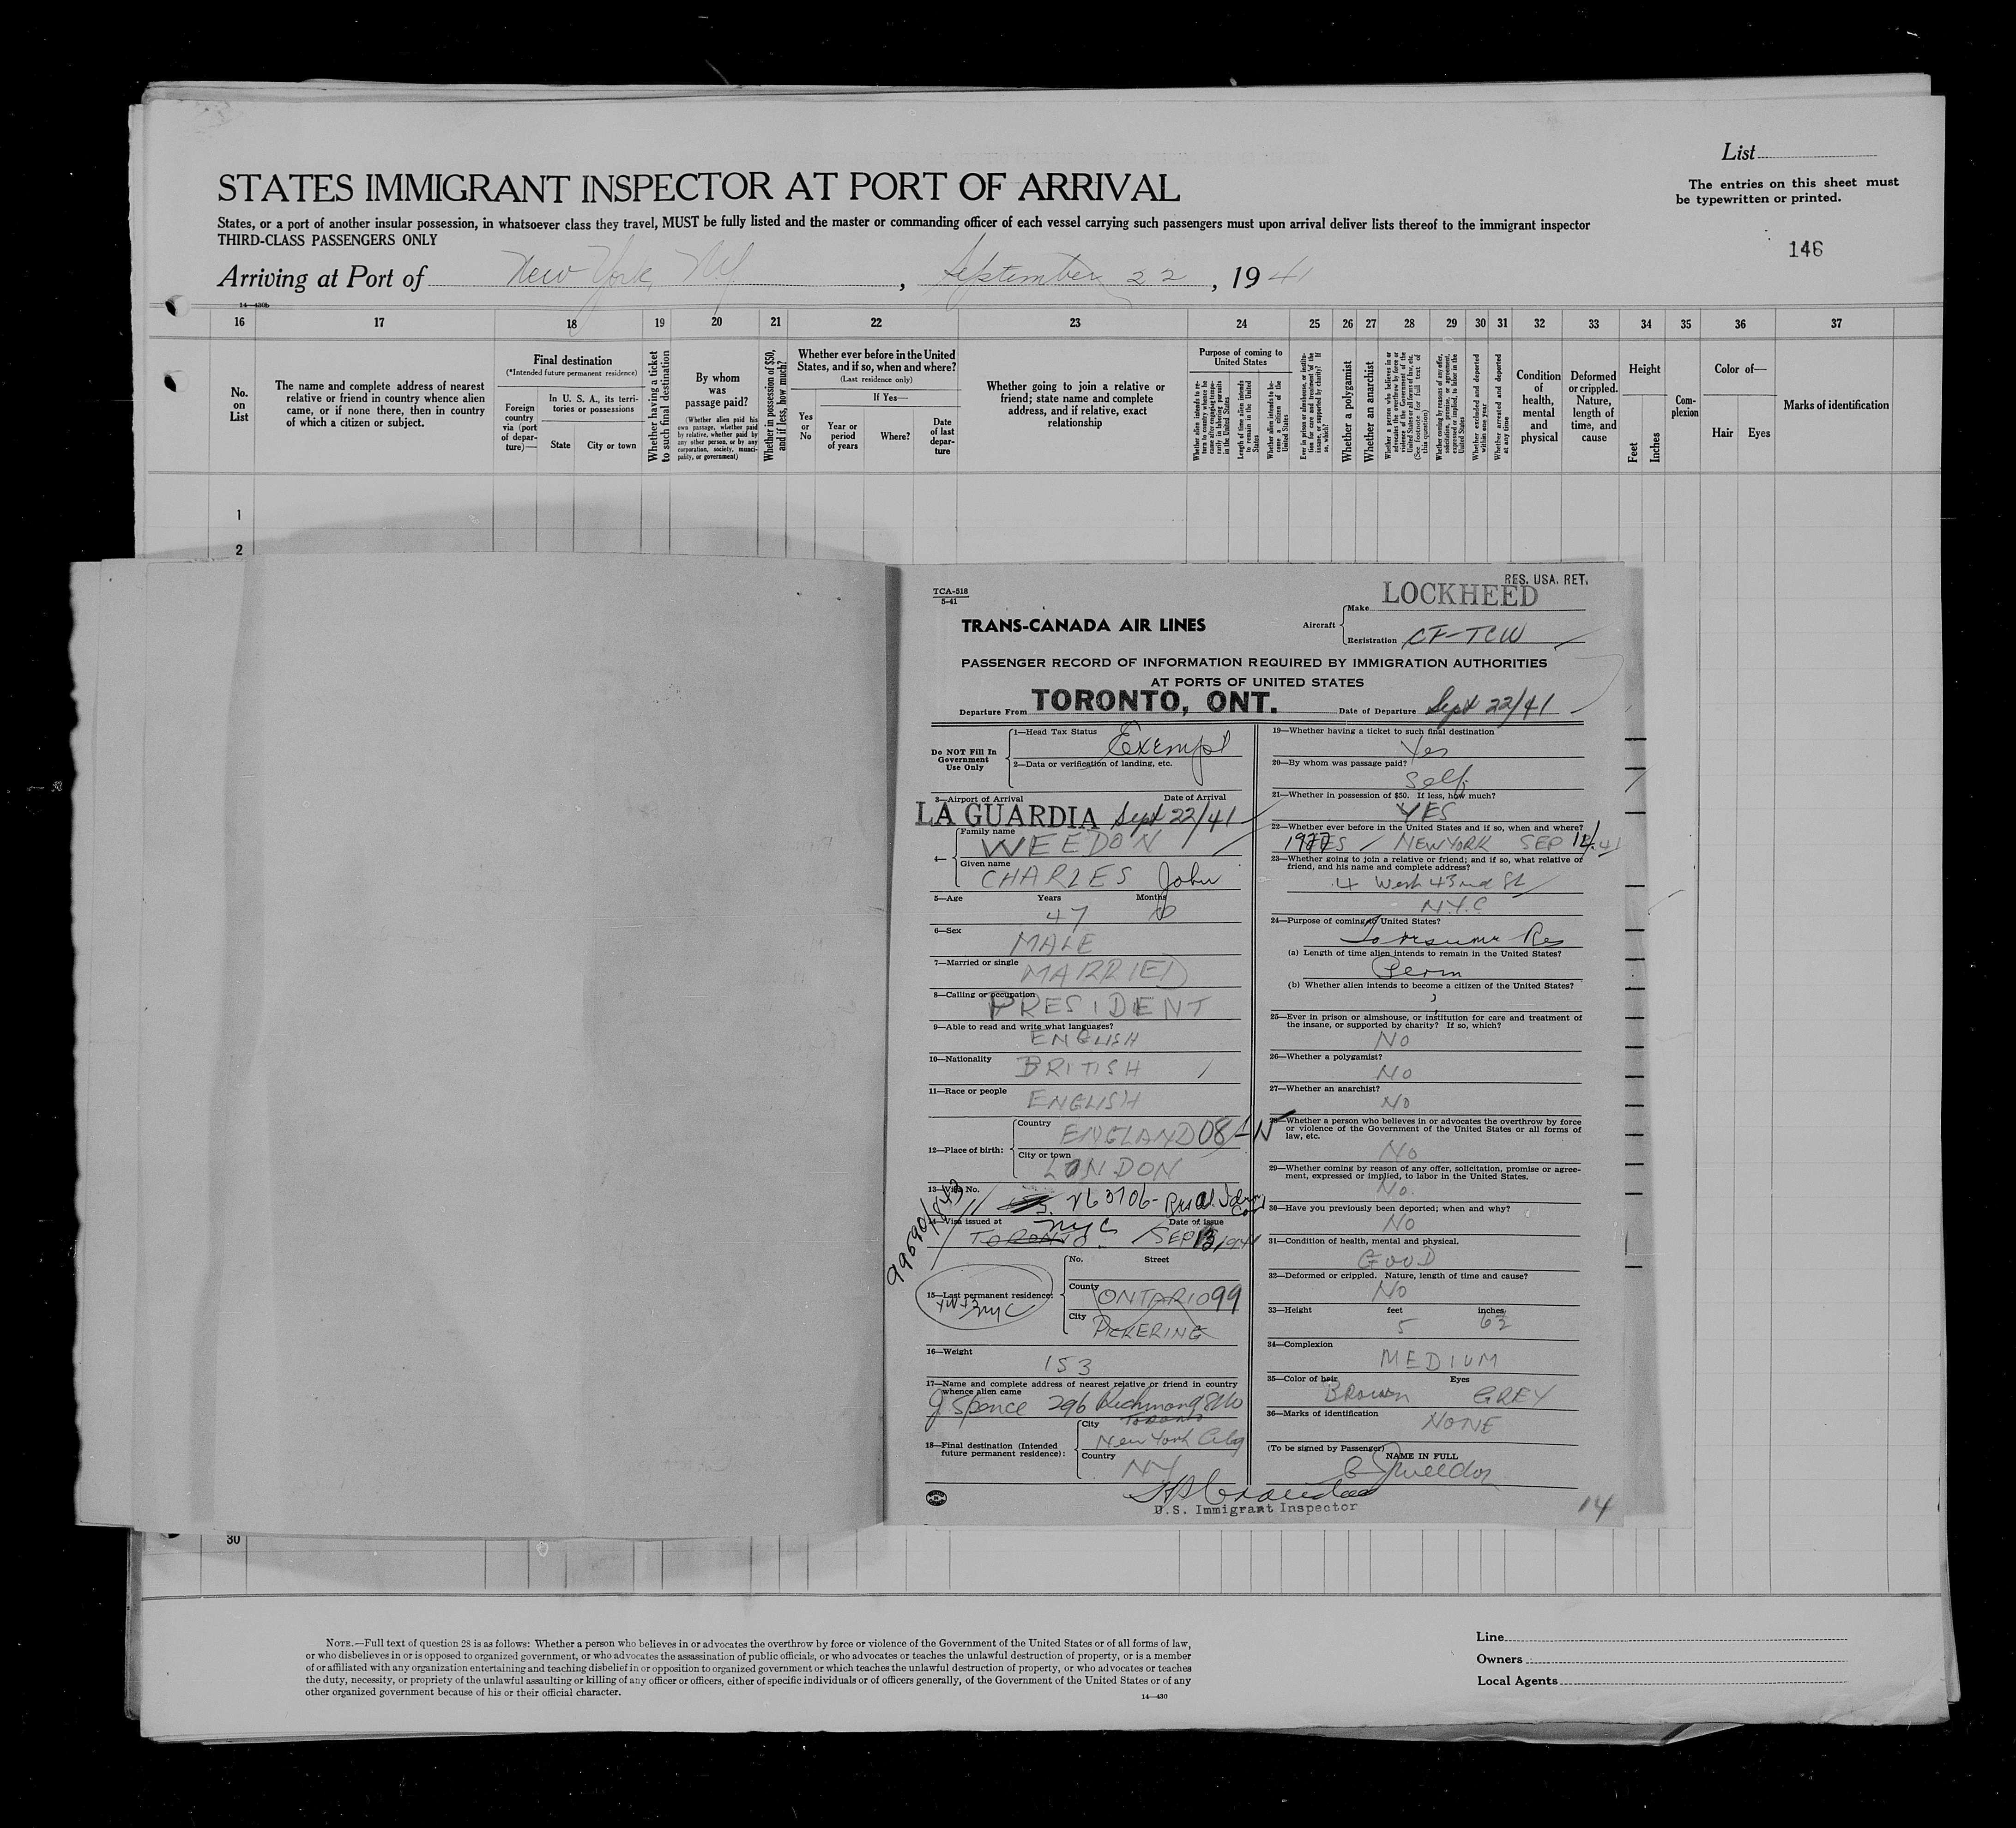 List
The entries on this sheet must
be typewritten or printed.
STATES IMMIGRANT INSPECTOR AT PORT OF ARRIVAL
States, or a port of another insular possession, in whatsoever class they travel, MUST be fully listed and the master or commanding officer of each vessel carrying such passengers must upon arrival deliver lists thereof to the immigrant inspector
THIRD-CLASS PASSENGERS ONLY
146
Arriving at Port of New York, N.Y. , September 22 , 19 41
14—430b
16 17 18 19 20 21 22 23 24 25 26 27 28 29 30 31 32 33 34 35 36 37
No. on List
The name and complete address of nearest relative or friend in country whence alien came, or if none there, then in country of which a citizen or subject.
Final destination
(*Intended future permanent residence)
Foreign country via (port of departure)—
In U. S. A., its territories or possessions
State City or town
Whether having a ticket to such final destination
By whom was passage paid?
(Whether alien paid his own passage, whether paid by relative, whether paid by any other person, or by any corporation, society, municipality, or government)
Whether in possession of $50, and if less, how much?
Whether ever before in the United States, and if so, when and where?
(Last residence only)
Yes or No
If Yes—
Year or period of years
Where?
Date of last departure
Whether going to join a relative or friend; state name and complete address, and if relative, exact relationship
Purpose of coming to United States
Whether alien intends to return to country whence he came after engaging temporarily in laboring pursuits in the United States
Length of time alien intends to remain in the United States
Whether alien intends to become a citizen of the United States
Ever in prison or almshouse, or institution for care and treatment of the insane, or supported by charity? If so, which?
Whether a polygamist
Whether an anarchist
Whether a person who believes in or advocates the overthrow by force or violence of the Government of the United States or all forms of law, etc. (See footnote for full text of this question)
Whether coming by reason of any offer, solicitation, promise, or agreement, expressed or implied, to labor in the United States
Whether excluded and deported within one year
Whether arrested and deported at any time
Condition of health, mental and physical
Deformed or crippled. Nature, length of time, and cause
Height
Feet Inches
Complexion
Color of—
Hair Eyes
Marks of identification
1
2
TCA-518
5-41
RES. USA. RET.
TRANS-CANADA AIR LINES
Aircraft
Make LOCKHEED
Registration CF-TCW
PASSENGER RECORD OF INFORMATION REQUIRED BY IMMIGRATION AUTHORITIES
AT PORTS OF UNITED STATES
Departure From TORONTO, ONT. Date of Departure Sept 22/41
Do NOT Fill In Government Use Only
1—Head Tax Status Exempt
2—Data or verification of landing, etc.
3—Airport of Arrival Date of Arrival
LA GUARDIA Sept 22/41
4— Family name
WEEDON
Given name
CHARLES John
5—Age Years Months
47 0
6—Sex
MALE
7—Married or single MARRIED
8—Calling or occupation
PRESIDENT
9—Able to read and write what languages?
ENGLISH
10—Nationality BRITISH
11—Race or people ENGLISH
12—Place of birth:
Country ENGLAND 08 N
City or town LONDON
13—Visa No.
263706
14—Visa issued at NYC Date of issue
TORONTO SEP 13 1941
99590/843
15—Last permanent residence:
NYC
No. Street
County ONTARIO 99
City PICKERING
16—Weight 153
17—Name and complete address of nearest relative or friend in country
whence alien came
J Spence 296 Richmond St W
Toronto
18—Final destination (Intended
future permanent residence):
City New York City
Country NY
U.S. Immigrant Inspector
19—Whether having a ticket to such final destination
Yes
20—By whom was passage paid?
Self
21—Whether in possession of $50. If less, how much?
YES
22—Whether ever before in the United States and if so, when and where?
NEW YORK SEP
23—Whether going to join a relative or friend; and if so, what relative or
friend, and his name and complete address?
4 West 43rd St
N.Y.C
24—Purpose of coming to United States?
To resume Res
(a) Length of time alien intends to remain in the United States?
Perm
(b) Whether alien intends to become a citizen of the United States?
?
25—Ever in prison or almshouse, or institution for care and treatment of
the insane, or supported by charity? If so, which?
No
26—Whether a polygamist?
No
27—Whether an anarchist?
No
28—Whether a person who believes in or advocates the overthrow by force
or violence of the Government of the United States or all forms of
law, etc.
No
29—Whether coming by reason of any offer, solicitation, promise or agree-
ment, expressed or implied, to labor in the United States.
No.
30—Have you previously been deported; when and why?
No
31—Condition of health, mental and physical.
GOOD
32—Deformed or crippled. Nature, length of time and cause?
No
33—Height feet inches
5 6½
34—Complexion
MEDIUM
35—Color of hair Eyes
Brown GREY
36—Marks of identification NONE
(To be signed by Passenger) NAME IN FULL
C J Weedon
14
30
NOTE.—Full text of question 28 is as follows: Whether a person who believes in or advocates the overthrow by force or violence of the Government of the United States or of all forms of law,
or who disbelieves in or is opposed to organized government, or who advocates the assassination of public officials, or who advocates or teaches the unlawful destruction of property, or is a member
of or affiliated with any organization entertaining and teaching disbelief in or opposition to organized government or which teaches the unlawful destruction of property, or who advocates or teaches
the duty, necessity, or propriety of the unlawful assaulting or killing of any officer or officers, either of specific individuals or of officers generally, of the Government of the United States or of any
other organized government because of his or their official character.
14—430
Line
Owners
Local Agents